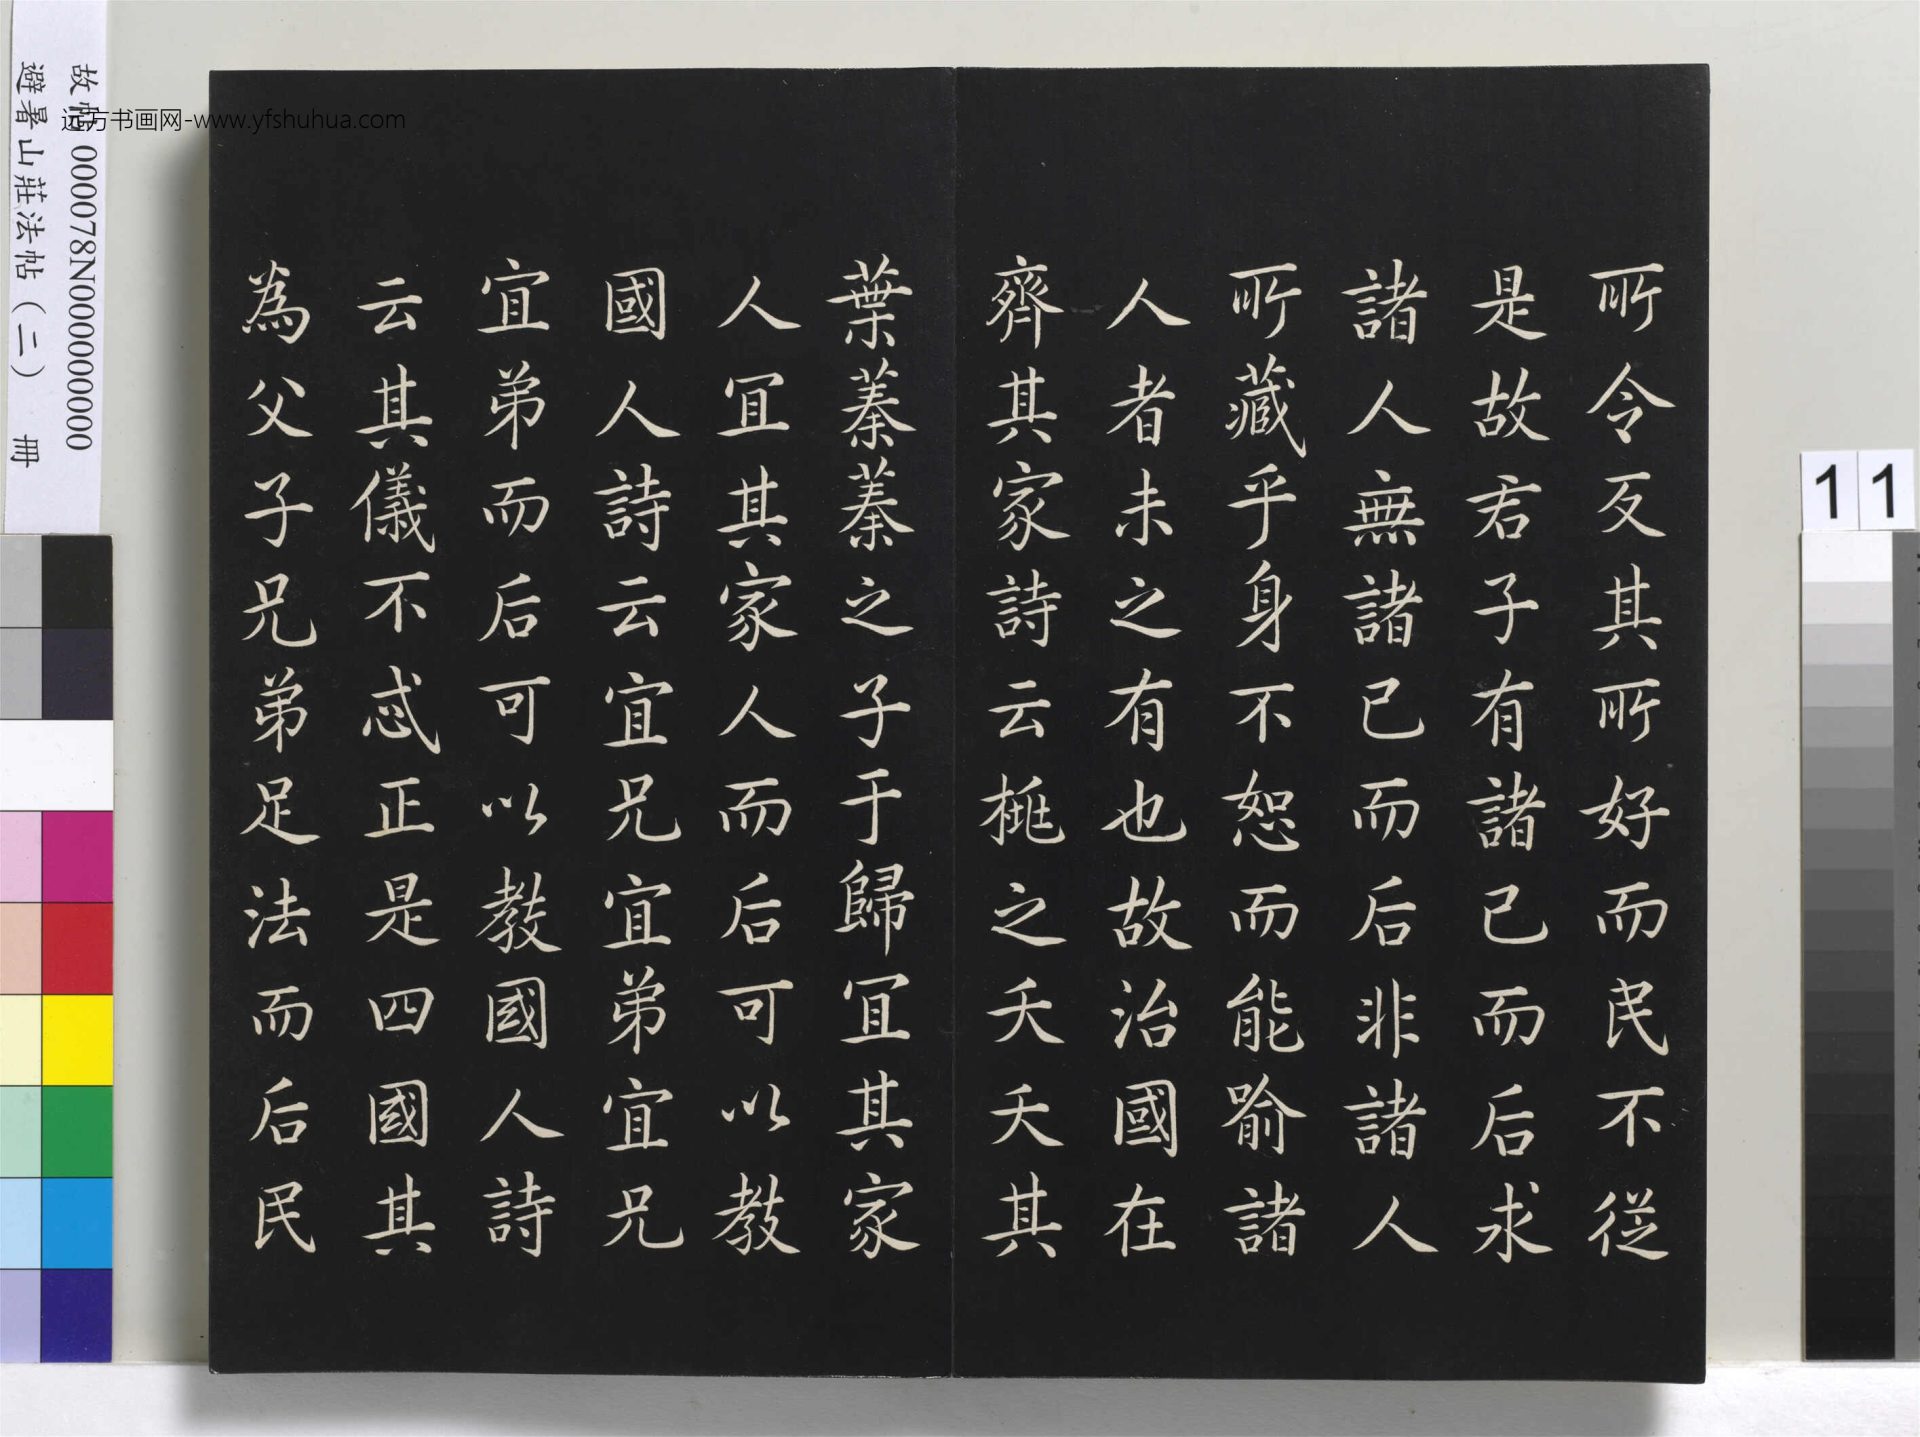 所令反其所好而民不從
是故君子有諸己而后求
諸人無諸己而后非諸人
所藏乎身不恕而能喻諸
人者未之有也故治國在
齊其家詩云桃之夭夭其
葉蓁蓁之子于歸宜其家
人宜其家人而后可以教
國人詩云宜兄宜弟宜兄
宜弟而后可以教國人詩
云其儀不忒正是四國其
為父子兄弟足法而后民
故帖 000078N000000000
避暑山莊法帖（二） 冊
远方书画网-www.yfshuhua.com
11